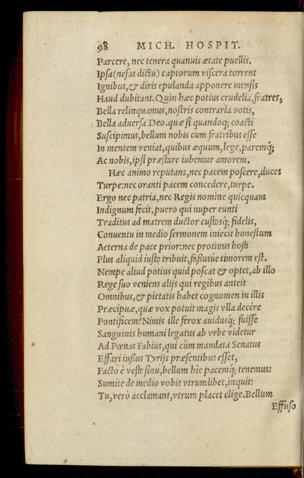 98 MICH. HOSPIT.
Parcere, nec tenera quanuis ætate puellis.
Ipsa (nefas dictu) captorum viscera torrent
Ignibus, & diris epulanda apponere mensis
Haud dubitant. Quin hæc potius crudelia, fratres,
Bella relinquamus, nostris contraria votis,
Bella aduersa Deo. quæ si quandoq; coacti
Suscipimus, bellum nobis cum fratribus esse
In mentem veniat, quibus æquum, lege, paremq́;
Ac nobis, ipsi præstare iubemur amorem.
Hæc animo reputans, nec pacem poscere, duces
Turpe: nec oranti pacem concedere, turpe.
Ergo nec patria, nec Regis nomine quicquam
Indignum fecit, puero qui nuper eunti
Traditus ad matrem ductor custosq́; fidelis,
Conuentu in medio sermonem iniecit honestum
Aeterna de pace prior: nec protinus hosti
Plus aliquid iusto tribuit, fususue timorem est.
Nempe aliud potius quid poscat & optet, ab illo
Rege suo veniens alijs qui regibus anteit
Omnibus, & pietatis habet cognomen in illis
Præcipuæ, quæ vox potuit magis vlla decere
Pontificem? Nimis ille ferox auidusq́; fuisse
Sanguinis humani legatus ab vrbe videtur
Ad Pœnas Fabius, qui cùm mandata Senatus
Efferi iussus Tyrijs præsentibus esset,
Facto è veste sinu, bellum hîc pacemq́; tenemus:
Sumite de medio vobis vtrumlibet, inquit:
Tu, verò acclamant, vtrum placet elige. Bellum
Effuso